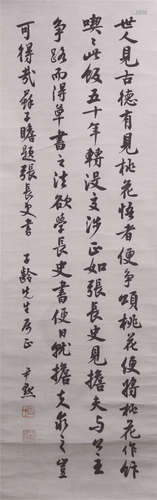 世人見古德有見桃花悟者便爭頌桃花便將桃花作飯
喫喫此飯五十年轉沒交涉正如張長史見擔夫與公主
爭路而得草書之法欲學長史書便日就擔夫求之豈
可得哉蘇子瞻題張長史書
齡先生屬正 尹默